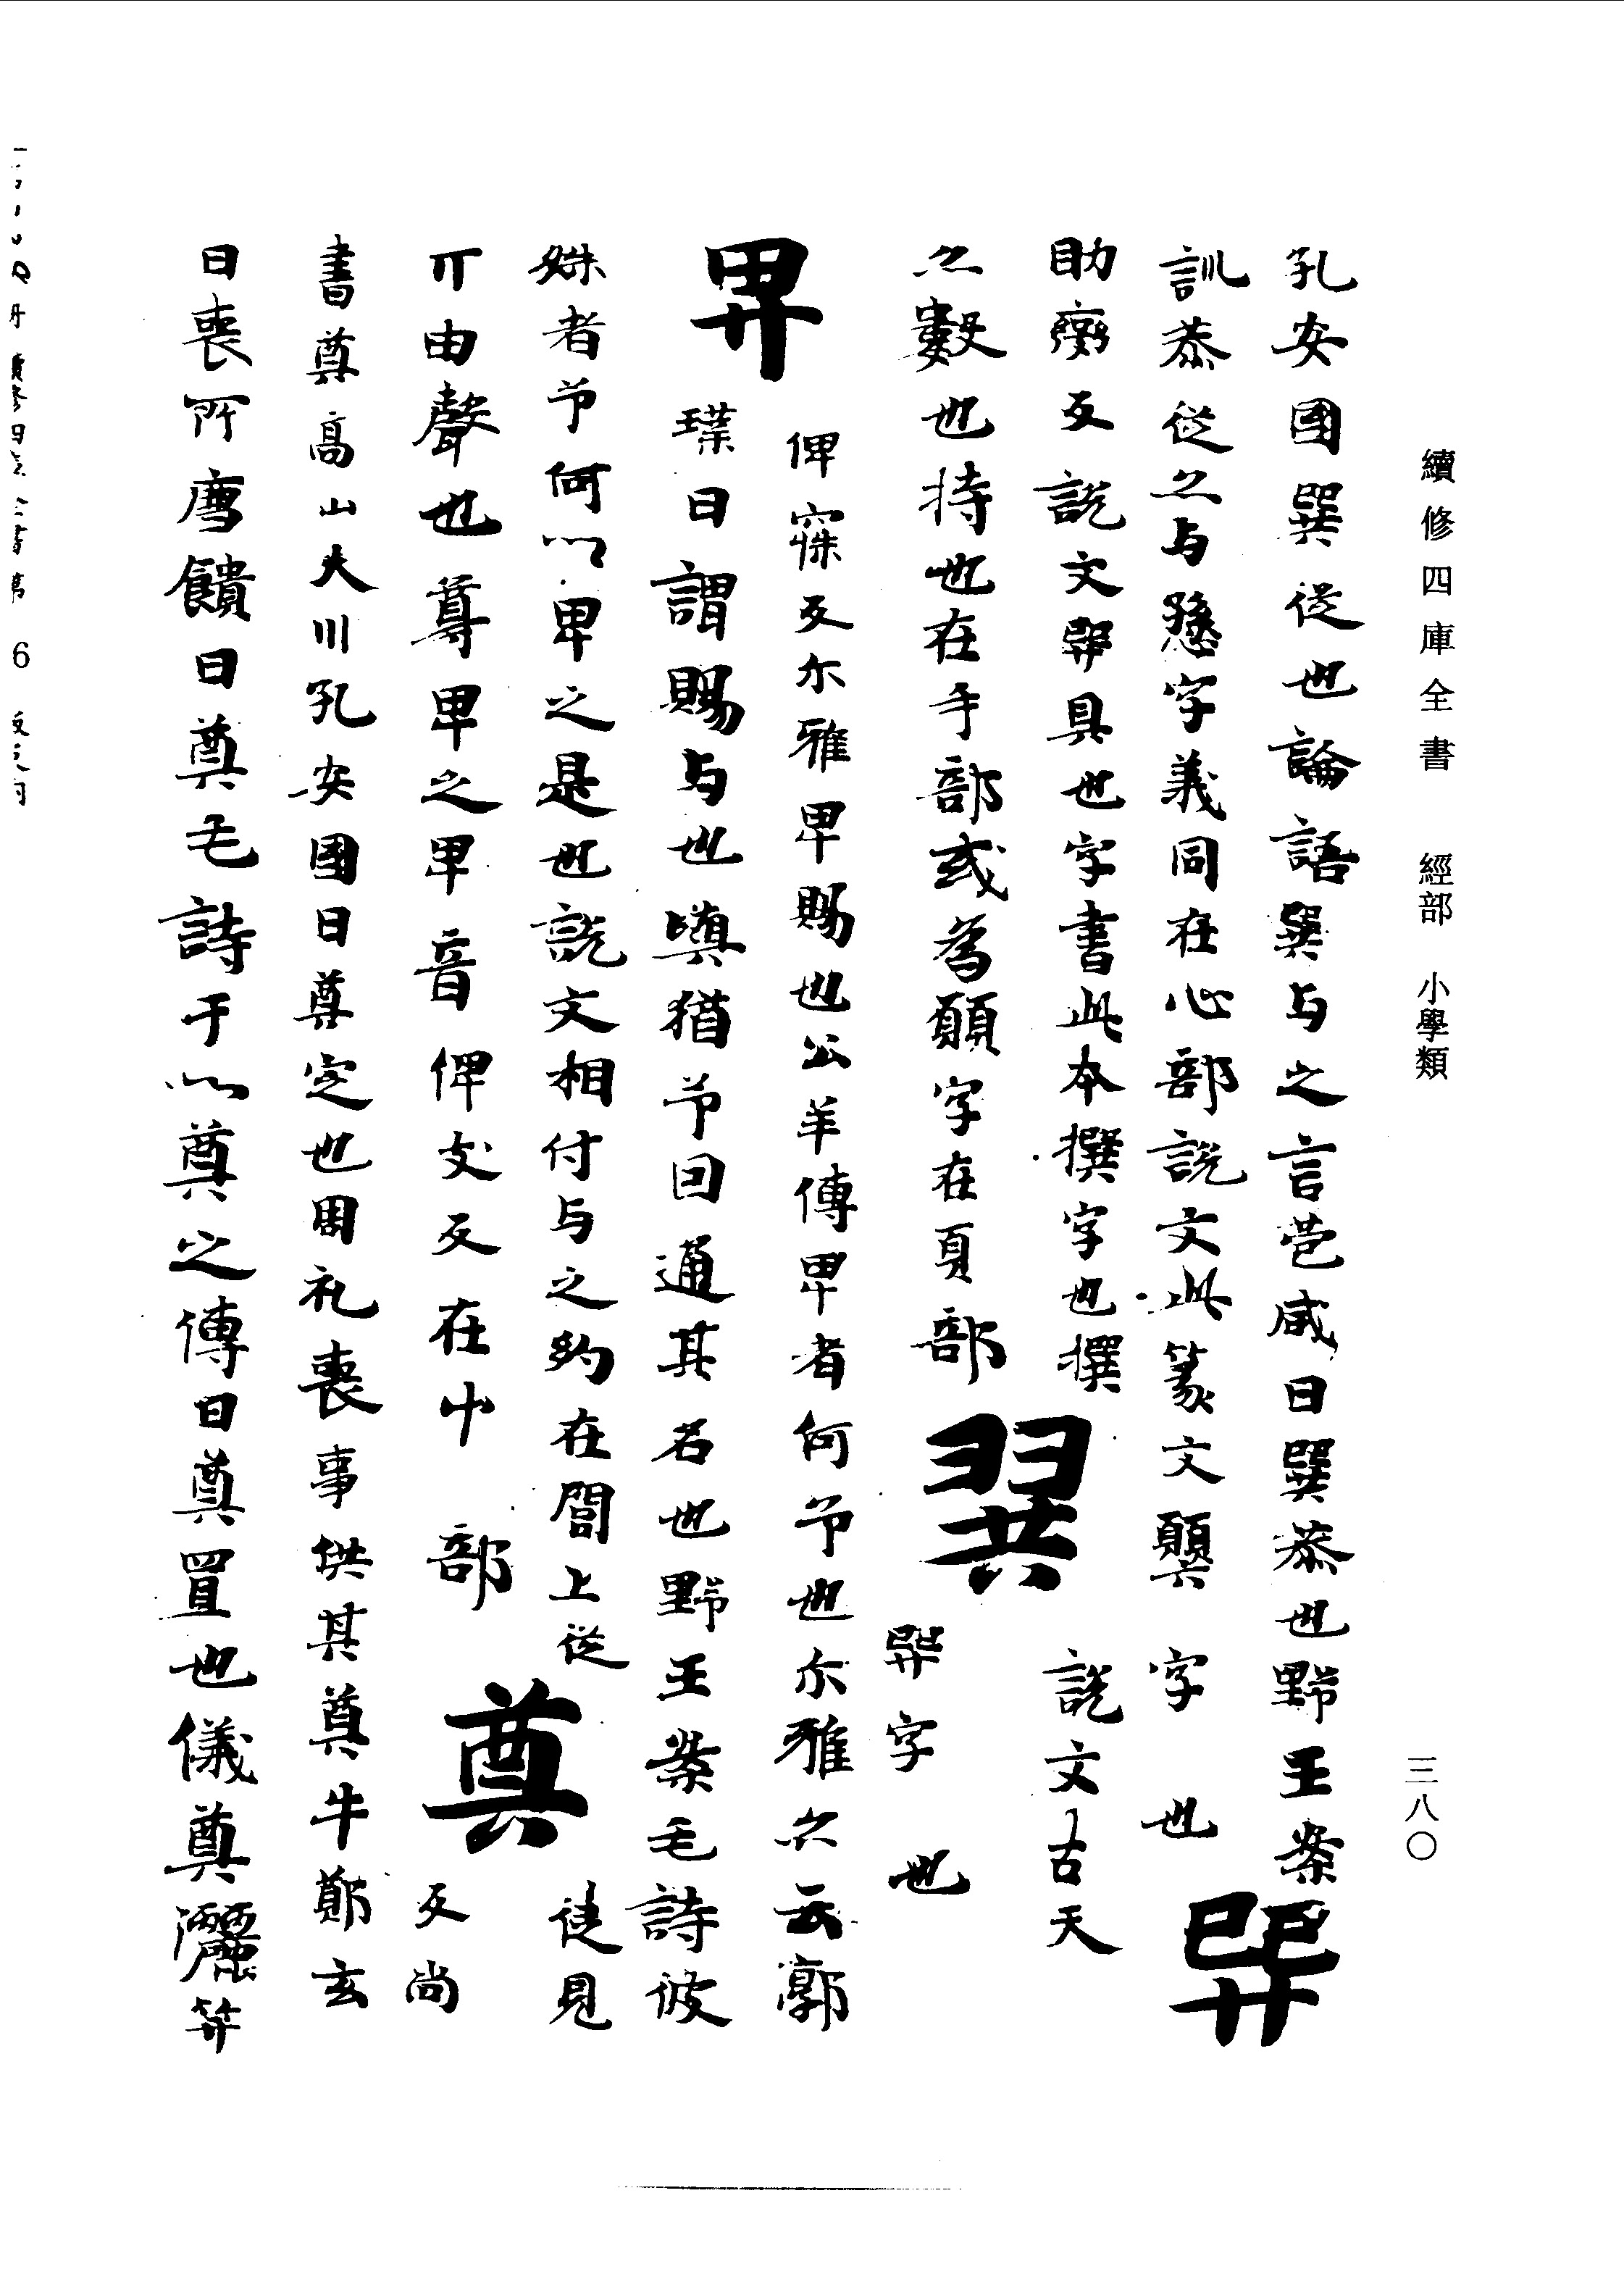 續修四庫全書 經部 小學類
三八〇
孔安國巽從也論語巽与之言苞咸曰巽恭也野王案
訓恭從之与愻字義同在心部說文此篆文顨字也
巺
助臠反說文巺具也字書此本撰字也撰
說文古天
之數也持也在手部或為顨字在頁部
巽
巺字也
畀
俾寐反尓雅畀賜也公羊傳畀者何予也尓雅亦云郭
璞曰謂賜与也嗔猶予囙通其名也野王案毛詩彼
姝者予何以畀之是也說文相付与之約在閣上從
丌由聲也尊畀之畀音俾攴反在屮部
奠
徒見
反尚
書奠高山大川孔安國曰奠定也周礼喪事供其奠牛鄭玄
曰喪所薦饋曰奠毛詩于以奠之傳曰奠置也儀奠